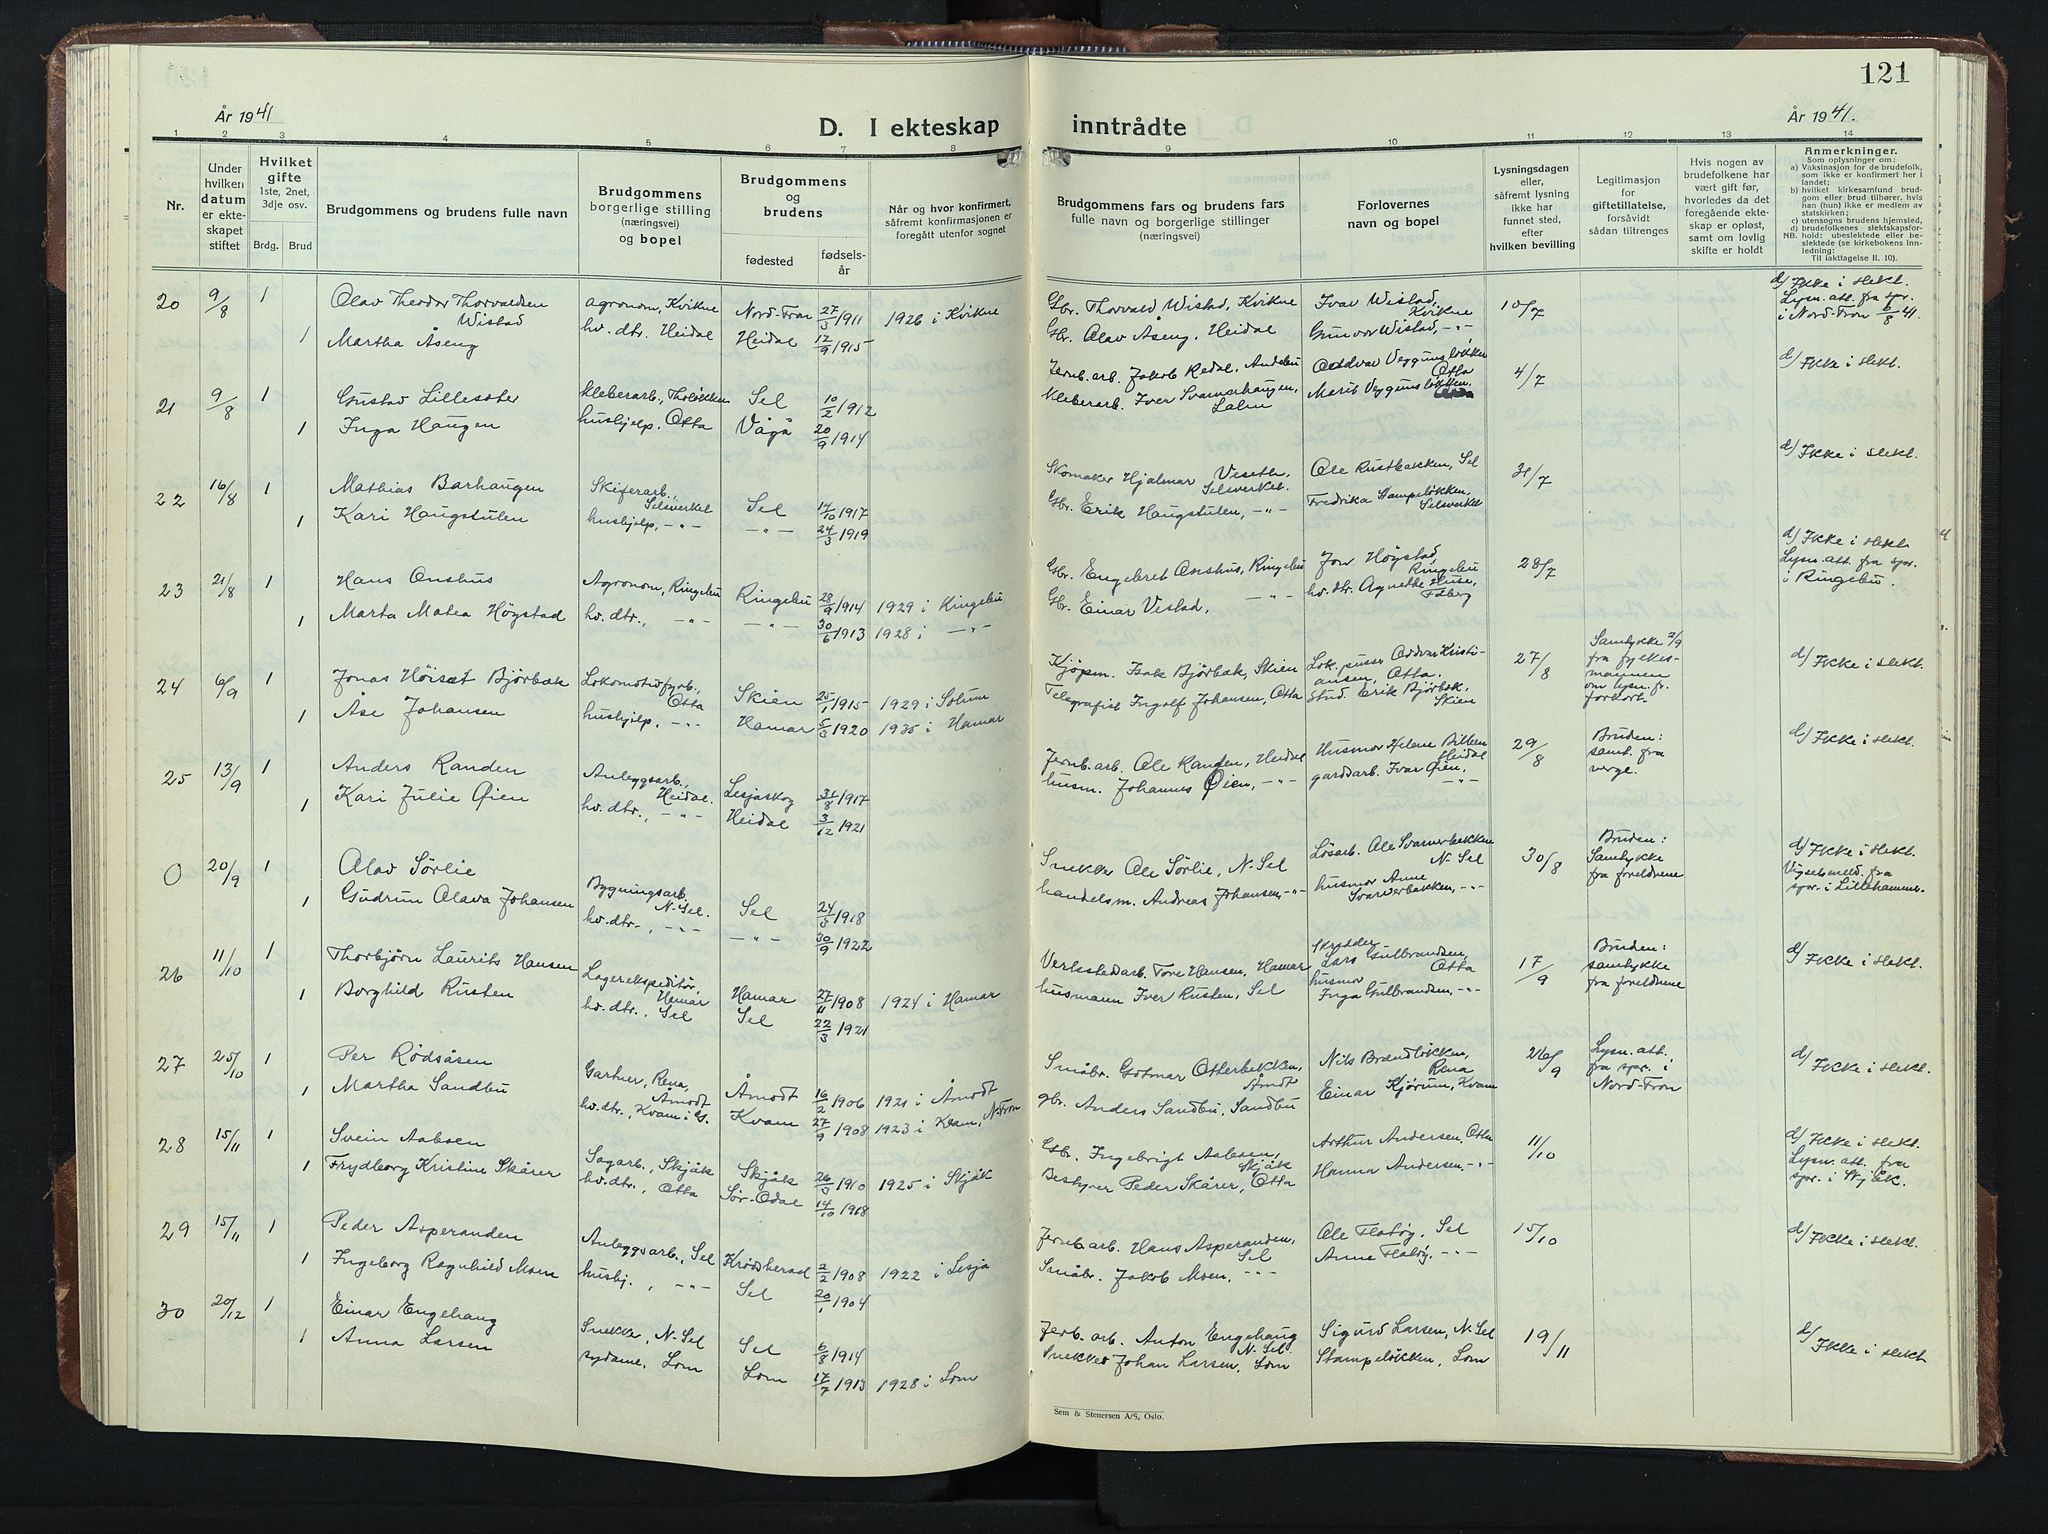 121
År 1941
D. I ekteskap inntrådte
År 1941.
1 2 3 4 5 6 7 8 9 10 11 12 13 14
Nr.
Under hvilken datum er ekteskapet stiftet
Hvilket gifte 1ste, 2net, 3dje osv.
Brdg. Brud
Brudgommens og brudens fulle navn
Brudgommens borgerlige stilling (næringsvei) og bopel
Brudgommens og brudens
fødested
fødselsår
Når og hvor konfirmert, såfremt konfirmasjonen er foregått utenfor sognet
Brudgommens fars og brudens fars fulle navn og borgerlige stillinger (næringsvei)
Forlovernes navn og bopel
Lysningsdagen eller, såfremt lysning ikke har funnet sted, efter hvilken bevilling
Legitimasjon for giftetillatelse, forsåvidt sådan tiltrenges
Hvis nogen av brudefolkene har vært gift før, hvorledes da det foregående ekteskap er opløst, samt om lovlig skifte er holdt
Anmerkninger.
Som oplysninger om:
a) Vaksinasjon for de brudefolk, som ikke er konfirmert her i landet;
b) hvilket kirkesamfund brudgom eller brud tilhører, hvis han (hun) ikke er medlem av statskirken;
c) utensogns brudens hjemsted,
d) brudefolkenes slektskapsforhold: ubeslektede eller beslektede (se kirkebokens innledning:
NB.
Til iakttagelse II, 10).
20 9/8 1 Olav Theodor Thorvaldsen Wistad agronom, Kvikne Nord-Fron 27/3 1911 1926 i Kvikne Gbr. Thorvald Wistad, Kvikne Ivar Wistad, Kvikne 10/7 d/ Ikke i slekt. Lysn. att. fra spr. i Nord-Fron 6/8 41.
1 Martha Åseng hv. dtr. Heidal Heidal 12/9 1915 Gbr. Olav Åseng, Heidal Gunvor Wistad, -"-
21 9/8 1 Gustav Lillesæter kleberarb., Tholøkken Sel 10/2 1912 Jernb. arb. Jakob Redal, Andebu Oddvar Veggumsløkken Otta 4/7 d/ Ikke i slekt.
1 Inga Haugen hushjelp, Otta Vågå 20/9 1914 Kleberarb. Iver Svarverhaugen, Lalm Marit Veggumsløkken.
22 16/8 1 Mathias Barhaugen Skiferarb., Selsverket Sel 14/10 1917 Skomaker Hjalmar Veseth. Selsverket. Ole Rustbakken, Sel 31/7 d/ Ikke i slekt.
1 Kari Haugstulen hushjelp, -"- -"- 24/3 1919 Gbr. Erik Haugstulen, -"- Fredrika Stampeløkken, Selsverket
23 21/8 1 Hans Onshus Agronom, Ringebu Ringebu 28/9 1914 1929 i Ringebu Gbr. Engebret Onshus, Ringebu Jon Høystad Ringebu 28/7 d/ Ikke i slekt. Lysn. att. fra spr. i Ringebu.
1 Marta Matea Høystad hv. dtr., -"- -"- 30/6 1913 1928 i -"- Gbr. Einar Vestad, -"- hv. dtr. Agnethe Huse,
24 6/9 1 Jonas Höisæt Bjørbæk Lokomotivfyrb., Otta Skien 25/1 1915 1929 i Solum Kjøpm. Isak Bjørbæk, Skien Lok. pusser Oddvar Kristiansen, Otta. 27/8 Samtykke 2/9 fra fylkesmannen om lysn. fr. forkort. d/ Ikke i slekt.
1 Åse Johansen hushjelp, -"- Hamar 5/3 1920 1935 i Hamar Telegrafist Ingolf Johansen, Otta Stud. Erik Bjørbæk, Skien
25 13/9 1 Anders Randen Anleggsarb., Heidal. Lesjaskog 31/8 1917 Jernb. arb. Ole Randen, Heidal Husmor Helene Bilben Heidal 29/8 Bruden: samt. fra verge. d/ Ikke i slekt.
1 Kari Julie Øien hv. dtr., -"- Heidal 3/12 1921 husm. Johannes Øien, -"- gardsarb. Ivar Øien, -"-
0 20/9 1 Olav Sørlie Bygningsarb. N-Sel. Sel 24/3 1918 Snekker Ole Sørlie, N-Sel Løsarb. Ole Svarverbakken N-Sel 30/8 Bruden: Samtykke fra foreldrene d/ Ikke i slekt. Vigselsmeld. fra spr. i Lillehammer.
1 Gudrun Olava Johansen hv. dtr., -"- -"- 30/9 1922 handelsm. Andreas Johansen, -"- husmor Anne Svarverbakken, -"-
26 11/10 1 Thorbjørn Laurits Hansen Lagerekspeditør, Hamar Hamar 27/11 1908 1924 i Hamar Verkstedsarb. Tore Hansen, Hamar Skredder Lars Gulbrandsen, Otta 17/9 Bruden: samtykke fra foreldrene d/ Ikke i slekt.
1 Borghild Rusten hv. dtr., Sel Sel 22/3 1921 husmann Iver Rusten, Sel husmor Inga Gulbrandsen, -"-
27 25/10 1 Per Rødsåsen Gartner, Rena, Åmodt Åmodt 16/2 1906 1921 i Åmodt Småbr. Gotmar Otterbekken, Åmodt Nils Brændløkken, Rena 26/9 Lysn. att. fra spr. i Nord-Fron d/ Ikke i slekt.
1 Martha Sandbu hv. dtr., Kvam i G. Kvam 27/9 1908 1923 i Kvam, N-Fron gbr. Anders Sandbu, Sandbu Einar Kjørum, Kvam
28 15/11 1 Svein Aaboen Sagarb., Skjåk Skjåk 26/3 1910 1925 i Skjåk Gbr. Ingebrigt Aaboen, Skjåk Arthur Andersen, Otta 11/10 d/ Ikke i slekt. Lysn. att. fra spr. i Skjåk.
1 Frydborg Kristine Skårer hv. dtr., Otta Sør-Odal 14/10 1908 Bestyrer Peder Skårer, Otta Hanna Andersen, -"-
29 15/11 1 Peder Asperanden Anleggsarb., Sel Krødsherad 2/2 1908 1922 i Lesja Jernb. arb. Hans Asperanden, Sel Ole Flatøy, Sel 15/10 d/ Ikke i slekt.
1 Ingeborg Ragnhild Moen hushj., -"- Sel 20/1 1904 Småbr. Jakob Moen, -"- Anne Flatøy, -"-
30 20/12 1 Einar Engehaug Snekker, N-Sel Sel 6/8 1914 Jerb. arb. Anton Engehaug N-Sel. Sigurd Larsen, N-Sel 19/11 d/ Ikke i slekt
1 Anna Larsen sydame, Lom Lom 17/7 1913 1928 i Lom Snekker Johan Larsen, Lom Stampeløkken, Lom
Sem & Stenersen A/S, Oslo.